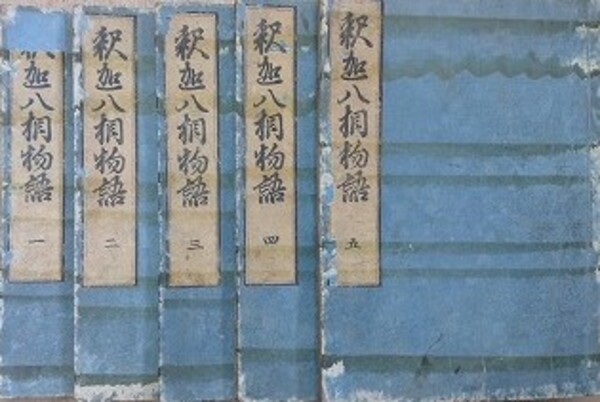 釈迦八相物語 一
釈迦八相物語 二
釈迦八相物語 三
釈迦八相物語 四
釈迦八相物語 五